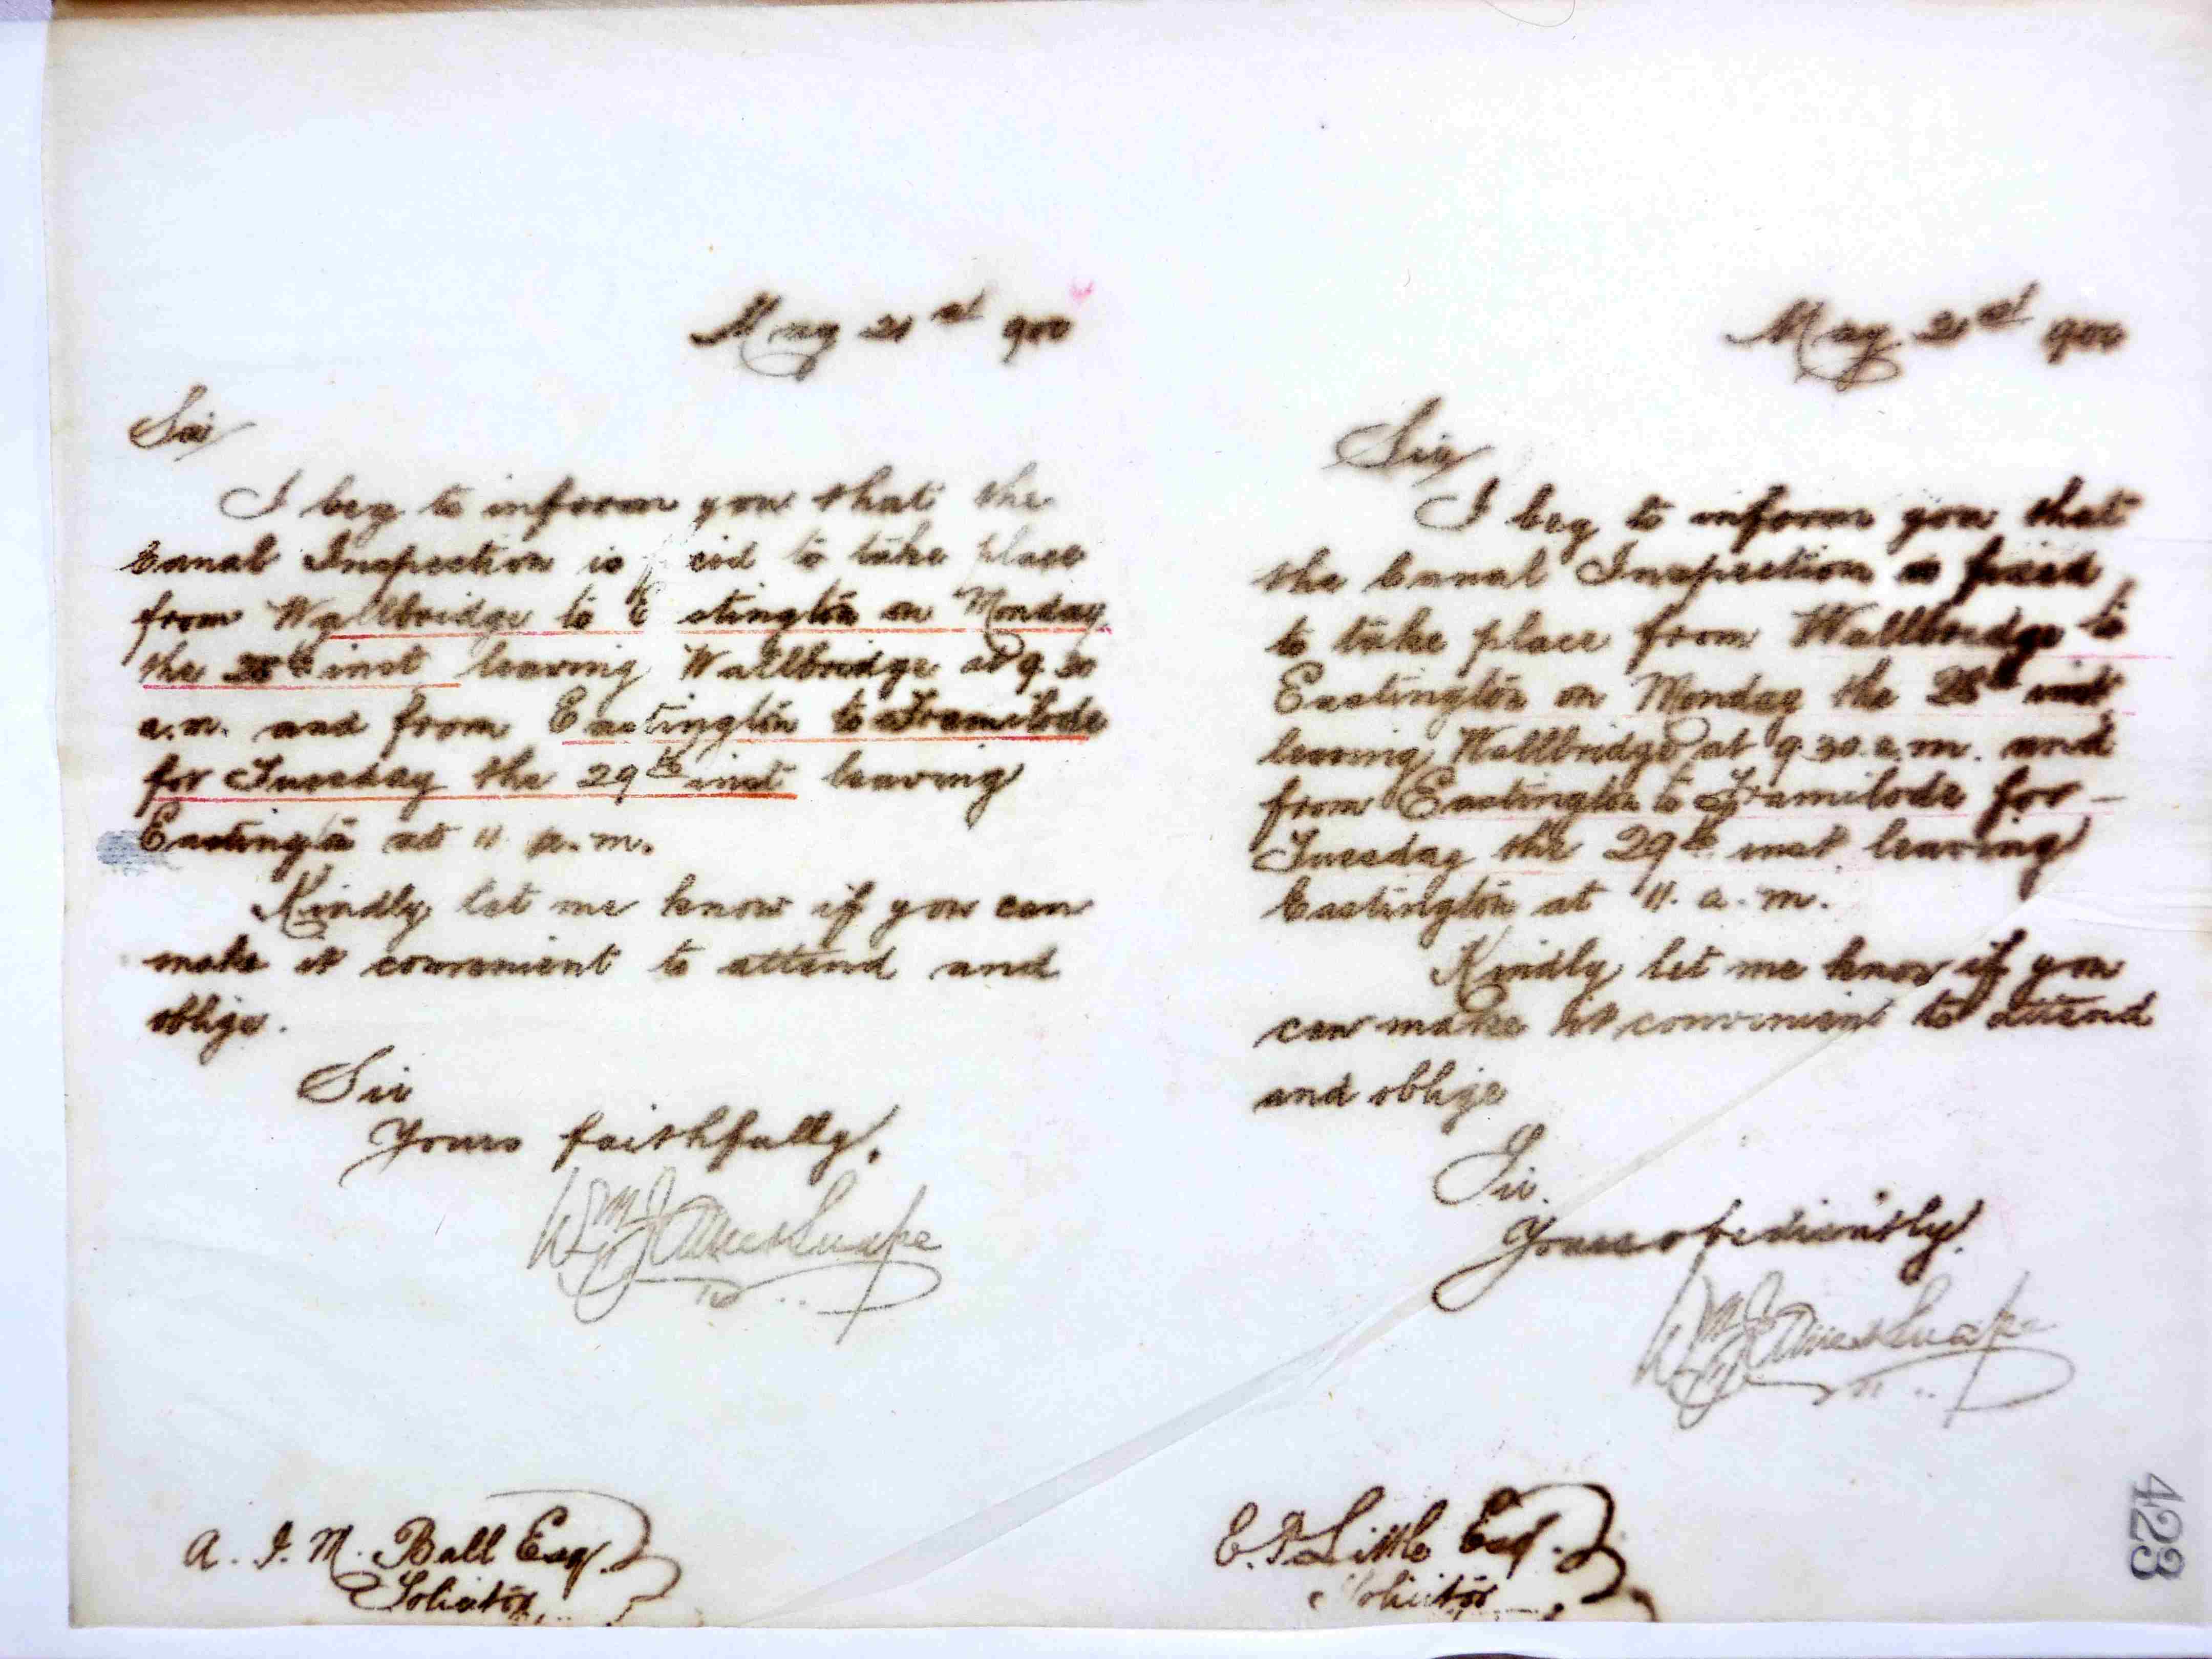 May 21st 900
Sir
I beg to inform you that the
Canal Inspection is fixed to take place
from Wallbridge to Eastington on Monday
the 28th inst leaving Wallbridge at 9.30
a.m. and from Eastington to Framilode
for Tuesday the 29th inst leaving
Eastington at 11 a.m.
Kindly let me know if you can
make it convenient to attend and
oblige.
Sir
Yours faithfully.
Wm James Snape
A. J. M. Ball Esq.
Solicitor
May 21st 900
Sir
I beg to inform you that
the Canal Inspection is fixed
to take place from Wallbridge to
Eastington on Monday the 28th inst
leaving Wallbridge at 9.30 a.m. and
from Eastington to Framilode for
Tuesday the 29th inst leaving
Eastington at 11. a.m.
Kindly let me know if you
can make it convenient to attend
and oblige
Sir.
Yours obediently.
Wm James Snape
E. P. Little Esq.
Solicitor
423